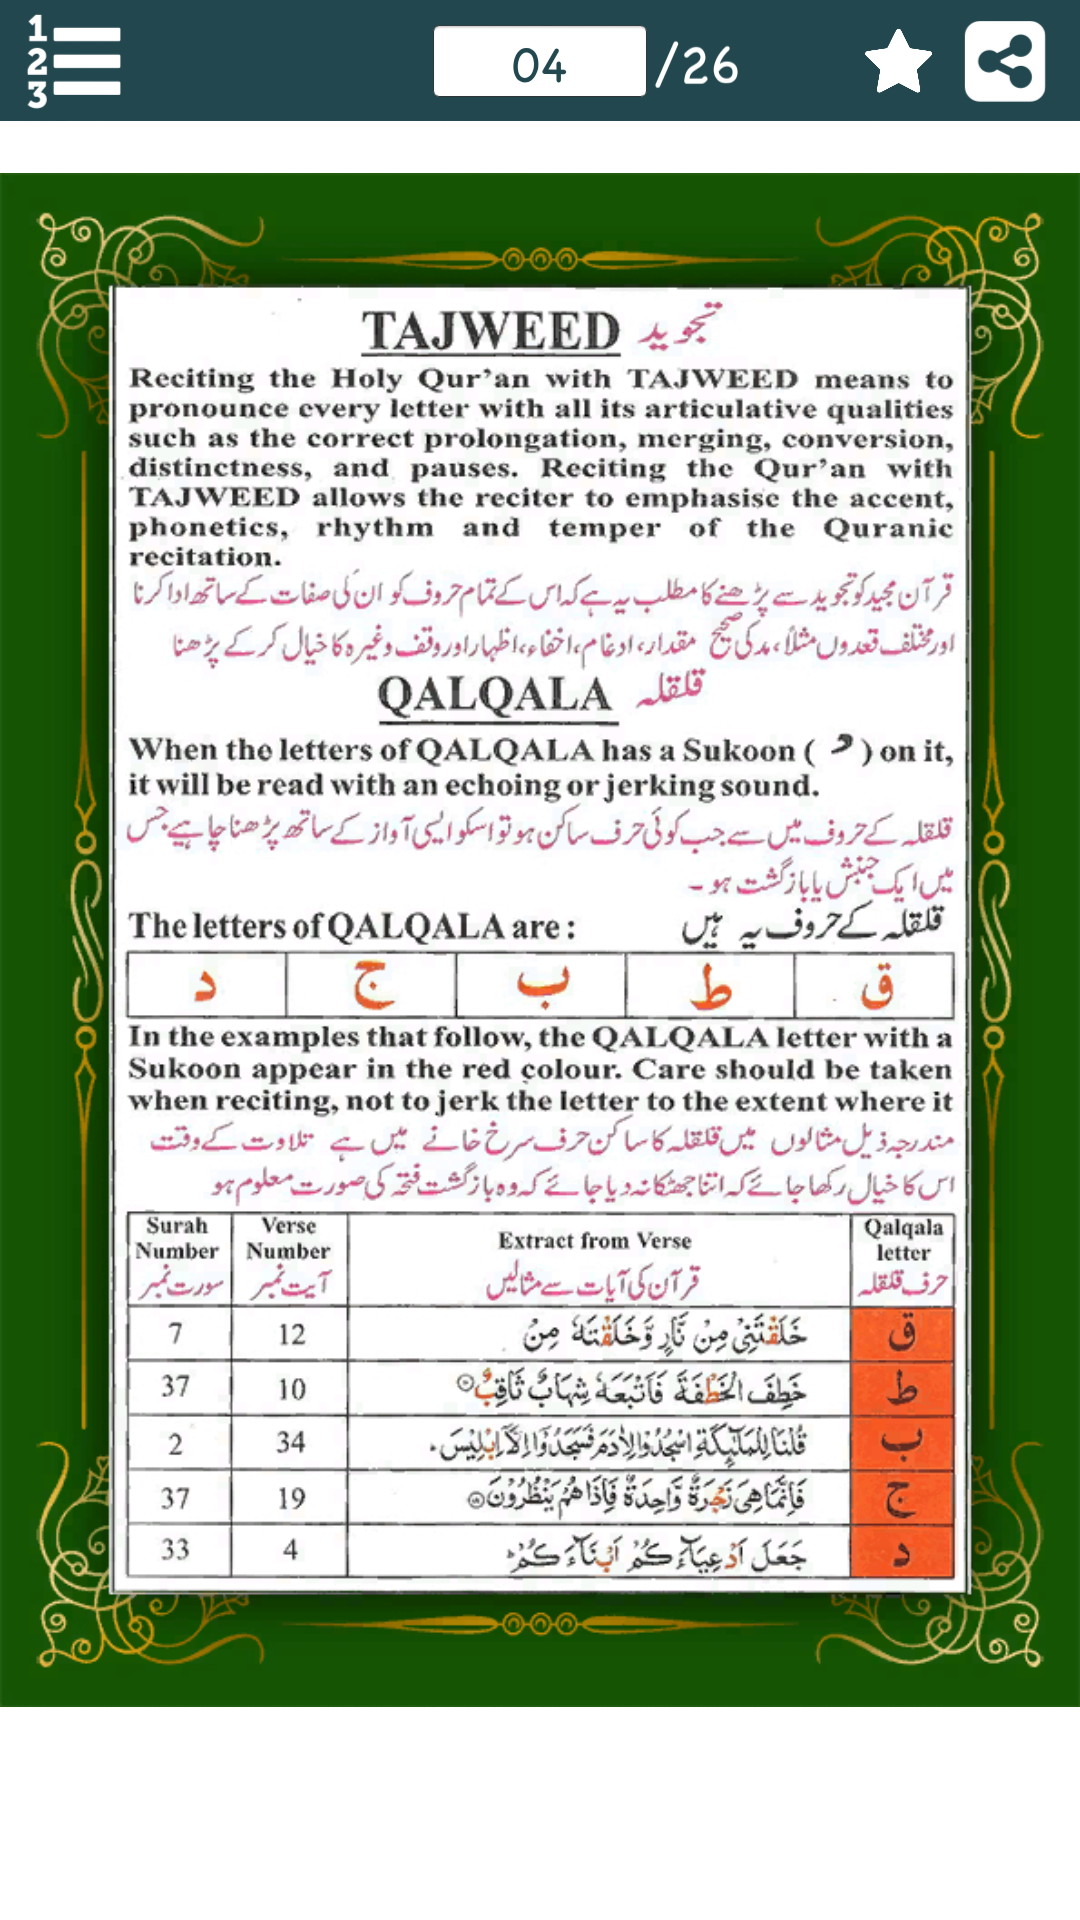 1
2
3
04 /26
TAJWEED تجوید
Reciting the Holy Qur’an with TAJWEED means to
pronounce every letter with all its articulative qualities
such as the correct prolongation, merging, conversion,
distinctness, and pauses. Reciting the Qur’an with
TAJWEED allows the reciter to emphasise the accent,
phonetics, rhythm and temper of the Quranic
recitation.
قرآن مجید کو تجوید سے پڑھنے کا مطلب یہ ہے کہ اس کے تمام حروف کو ان کی صفات کے ساتھ ادا کرنا
اور مختلف قعدوں مثلاً، مد کی صحیح مقدار، ادغام، اخفاء، اظہار اور وقف وغیرہ کا خیال کر کے پڑھنا
QALQALA قلقلہ
When the letters of QALQALA has a Sukoon ( ) on it,
it will be read with an echoing or jerking sound.
قلقلہ کے حروف میں سے جب کوئی حرف ساکن ہو تو اسکو ایسی آواز کے ساتھ پڑھنا چاہیے جس
میں ایک جنبش یا بازگشت ہو -
The letters of QALQALA are : قلقلہ کے حروف یہ ہیں
د ج ب ط ق
In the examples that follow, the QALQALA letter with a
Sukoon appear in the red colour. Care should be taken
when reciting, not to jerk the letter to the extent where it
مندرجہ ذیل مثالوں میں قلقلہ کا ساکن حرف سرخ خانے میں ہے تلاوت کے وقت
اس کا خیال رکھا جائے کہ اتنا جھٹکا نہ دیا جائے کہ وہ بازگشت فتحہ کی صورت معلوم ہو
Surah Number سورت نمبر Verse Number آیت نمبر Extract from Verse قرآن کی آیات سے مثالیں Qalqala letter حرف قلقلہ
7 12 خَلَقْتَنِیْ مِنْ نَّارٍ وَّخَلَقْتَهٗ مِنْ ق
37 10 خَطِفَ الْخَطْفَةَ فَاَتْبَعَهٗ شِهَابٌ ثَاقِبٌ ۝۱۰ ط
2 34 قُلْنَا لِلْمَلٰٓىِٕكَةِ اسْجُدُوْا لِاٰدَمَ فَسَجَدُوْۤا اِلَّاۤ اِبْلِیْسَ ب
37 19 فَاِنَّمَا هِیَ زَجْرَةٌ وَّاحِدَةٌ فَاِذَا هُمْ یَنْظُرُوْنَ ۝۱۹ ج
33 4 جَعَلَ اَدْعِیَآءَكُمْ اَبْنَآءَكُمْ ؕ د